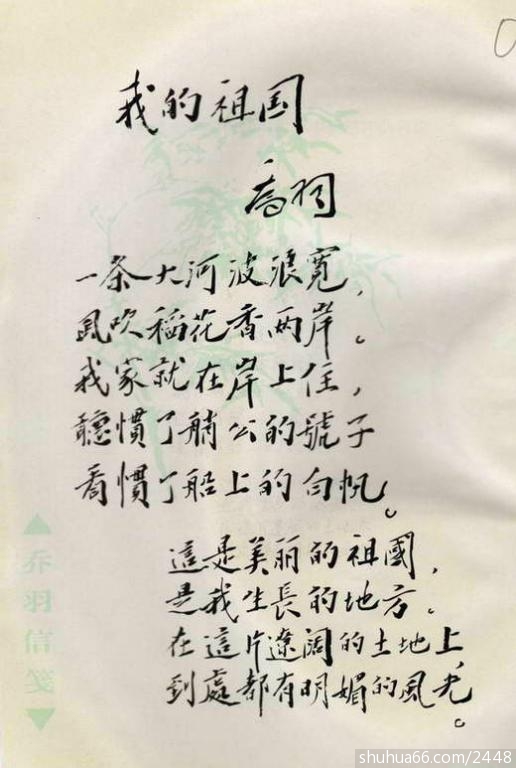 我的祖国
喬羽
一条大河波浪寬,
風吹稻花香两岸。
我家就在岸上住,
聽慣了艄公的號子
看慣了船上的白帆。
這是美丽的祖國,
是我生長的地方.
在這片遼阔的土地上,
到處都有明媚的風光。
▲乔羽信笺▼
shuhua66.com/2448